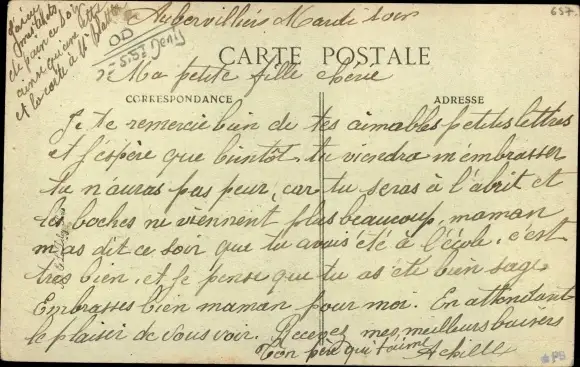 Aubervilliers Mardi soir
J'ai eu
de pain ce soir
ainsi qu'une lettre
et la carte à
OD
5. St Denis
657.
CARTE POSTALE
Ma petite fille chérie
CORRESPONDANCE
ADRESSE
Je te remercie bien de tes aimables petites lettres
et j'espère que bientôt tu viendra m'embrasser
tu n'auras pas peur, car tu seras à l'abrit et
les boches ni viennent plus beaucoup, maman
m'as dit ce soir que tu avais été à l'école, c'est
très bien, et je pense que tu as été bien sage
Embrasses bien maman pour moi. En attendant
le plaisir de vous voir. Recevez mes meilleurs baisers
Ton père qui t'aime Achille
PB